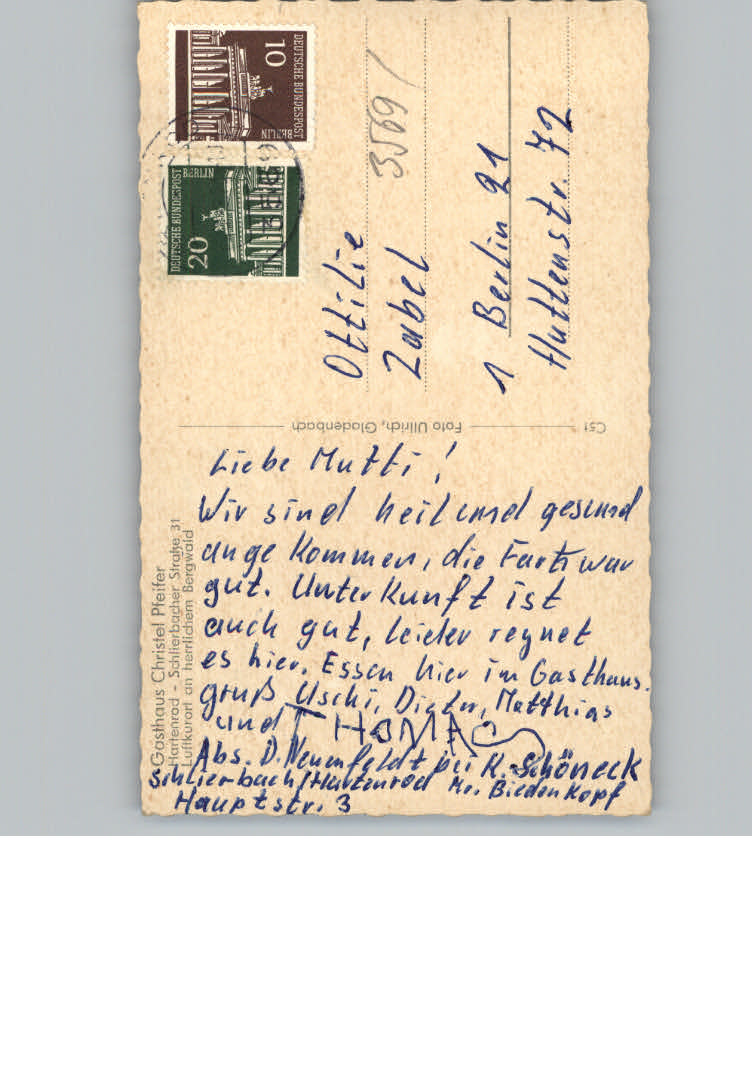 Gasthaus Christel Pfeifer
Hartenrod - Schlierbacher Straße 31
Luftkurort an herrlichem Bergwald
Liebe Mutti!
Wir sind heil und gesund
ange kommen, die Fart war
gut. Unterkunft ist
auch gut, leider regnet
es hier. Essen hier im Gasthaus.
gruß Uschi, Dieter, Matthias
und THOMAS
Abs. D. Neumfeldt bei K. Schöneck
Schlierbach/Hartenrod Kr. Biedenkopf
Hauptstr. 3
Foto Ullrich, Gladenbach
C51
DEUTSCHE BUNDESPOST
BERLIN
10
DEUTSCHE BUNDESPOST
BERLIN
20
3569/
Ottilie
Zabel
1 Berlin 21
Huttenstr. 72